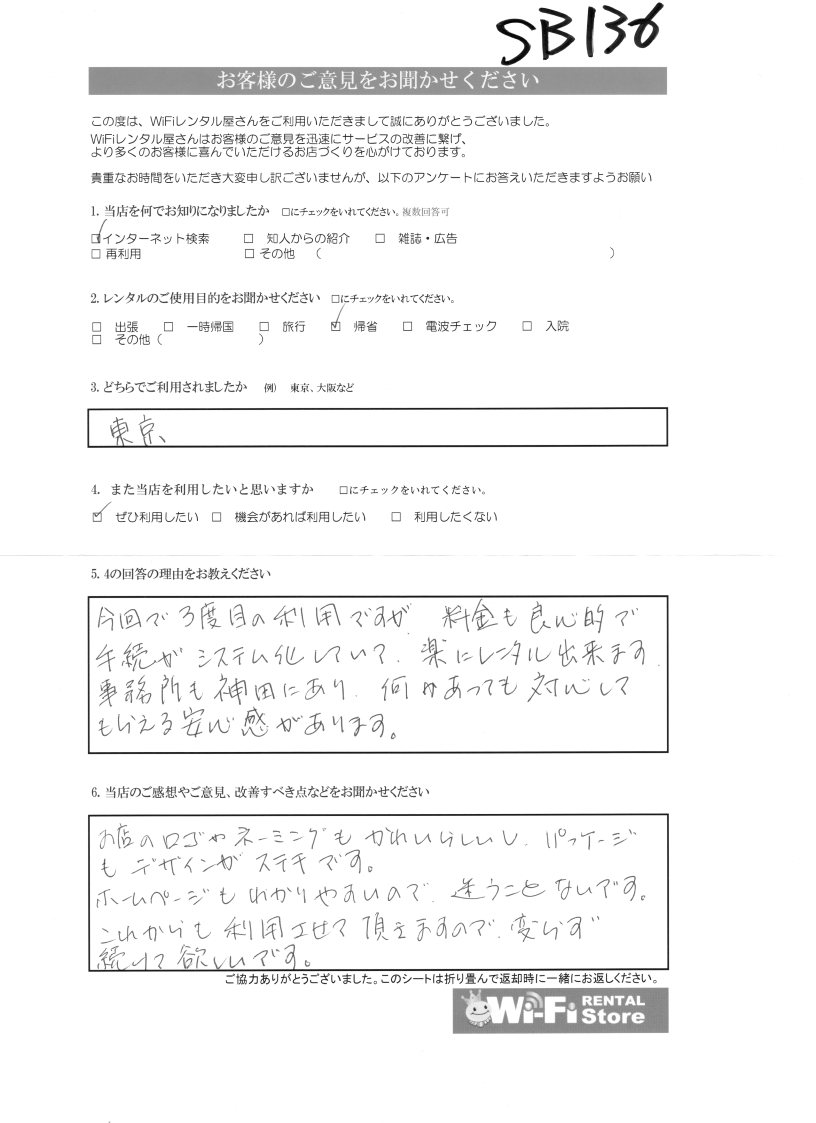 SB136
お客様のご意見をお聞かせください
この度は、WiFiレンタル屋さんをご利用いただきまして誠にありがとうございました。
WiFiレンタル屋さんはお客様のご意見を迅速にサービスの改善に繋げ、
より多くのお客様に喜んでいただけるお店づくりを心がけております。
貴重なお時間をいただき大変申し訳ございませんが、以下のアンケートにお答えいただきますようお願い
1. 当店を何でお知りになりましたか □にチェックをいれてください。複数回答可
☑インターネット検索 □ 知人からの紹介 □ 雑誌・広告
□ 再利用 □ その他 ( )
2. レンタルのご使用目的をお聞かせください □にチェックをいれてください。
□ 出張 □ 一時帰国 □ 旅行 ☑ 帰省 □ 電波チェック □ 入院
□ その他 ( )
3. どちらでご利用されましたか 例) 東京、大阪など
東京、
4. また当店を利用したいと思いますか □にチェックをいれてください。
☑ ぜひ利用したい □ 機会があれば利用したい □ 利用したくない
5. 4の回答の理由をお教えください
今回で3度目の利用ですが、料金も良心的で
手続がシステム化していて、楽にレンタル出来ます。
事務所も神田にあり、何かあっても対応して
もらえる安心感があります。
6. 当店のご感想やご意見、改善すべき点などをお聞かせください
お店のロゴやネーミングもかわいらしいし、パッケージ
もデザインがステキです。
ホームページもわかりやすいので、迷うことないです。
これからも利用させて頂えますので、変らず
続けて欲しいです。
ご協力ありがとうございました。このシートは折り畳んで返却時に一緒にお返しください。
Wi-Fi RENTAL Store